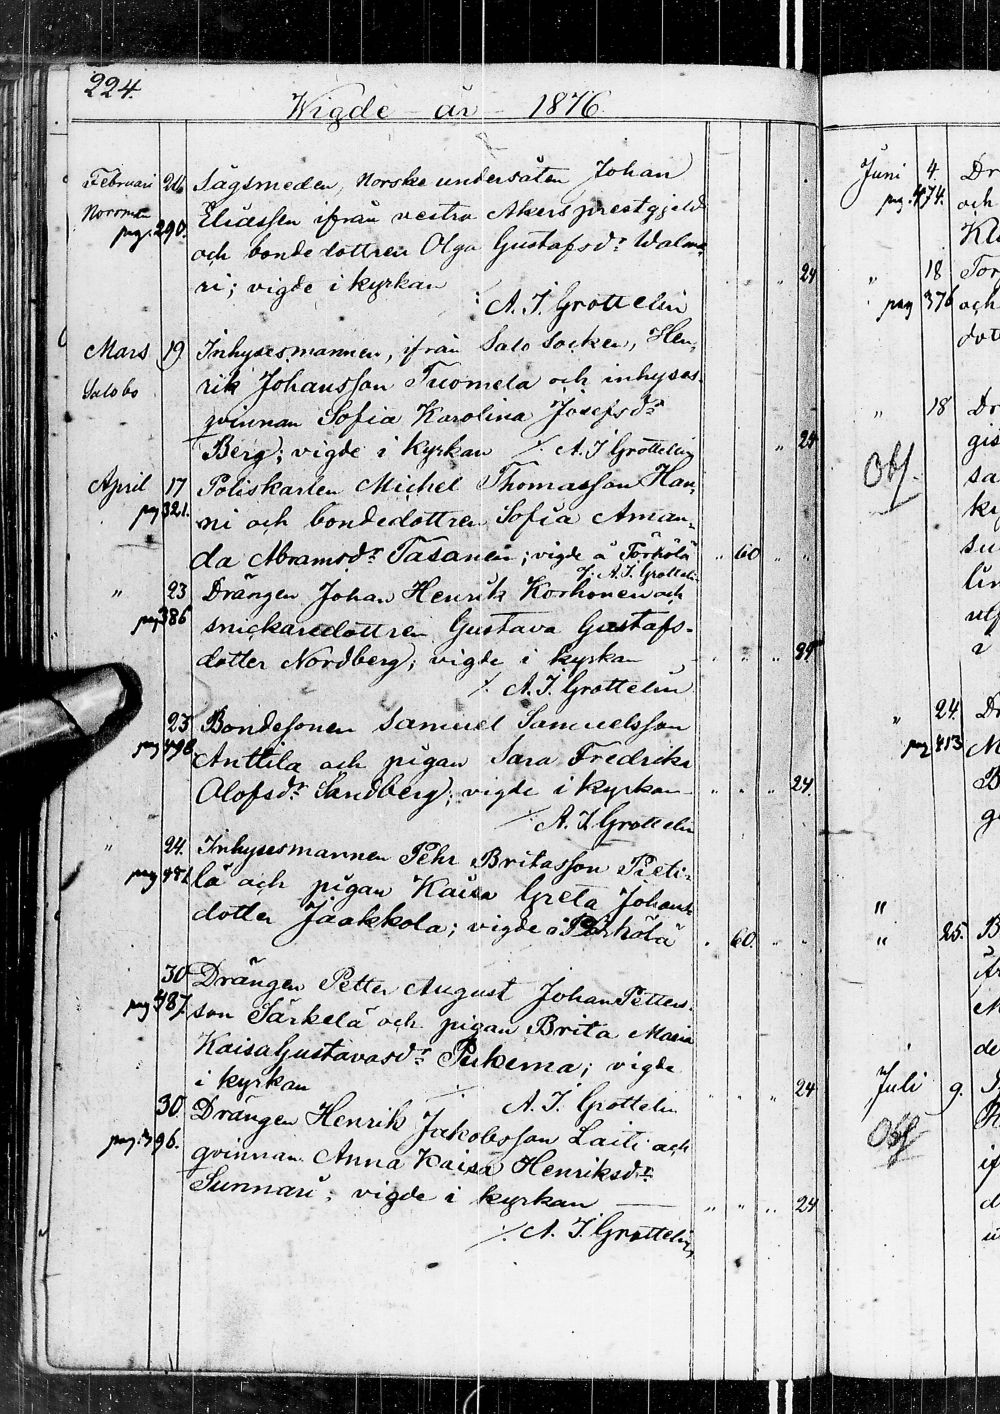 224.
Wigde år 1876
Februari 26 Sågsmeden, Norske undersåten Johan
Norrmän Eliassen ifrån vestra Akers prestgjeld
pag. 290. och bondedottren Olga Gustafsdr Walma-
ri; vigde i kyrkan " 24
/: A. I. Grottelin
Mars 19 Inhysesmannen, ifrån Salo Socken, Hen-
Salobo rik Johansson Tuomela och inhyses-
qvinnan Sofia Karolina Josefsdr
Berg; vigde i kyrkan /. A. I Grottelin " 24
April 17 Poliskarlen Michel Thomasson Han-
pag 321. ni och bondedottren Sofia Aman-
da Abramsdr Tasanen; vigde å Törhölä " 60 " "
/. A. I. Grottelin
" 23 Drängen Johan Henrik Korhonen och
pag 386 snickaredottren Gustava Gustafs-
dotter Nordberg; vigde i kyrkan " " " 24
/. A. I. Grottelin
23 Bondesonen Samuel Samuelsson
pag 498 Anttila och pigan Sara Fredrika
Olofsdr Sandberg; vigde i kyrkan " " " 24.
/. A. I. Grottelin
" 24. Inhysesmannen Pehr Britasson Pieti-
pag lä och pigan Kaisa Greta Johans
dotter Jaakkola; vigde å Törhölä " 60. " "
30 Drängen Petter August Johan Petters-
pag 487. son Särkelä och pigan Brita Maria
Kaisa Gustavasdr Pukema; vigde
i kyrkan /. A. I. Grottelin " " " 24
30. Drängen Henrik Jakobsson Laiti och
pag. 396. qvinnan Anna Kaisa Henriksdr
Sunnari; vigde i kyrkan " " " 24
/. A. I. Grottelin
Juni 4. Dr
pag. 474. och
Kl
" 18 Tor
pag 376 och
dot
" 18 Dr
Obs. gis
sa
ky
su
lin
utf
" 24. Dr
pag 413 M
B
g
"
" 25. B
M
de
Juli 9.
Obs
if
d
u